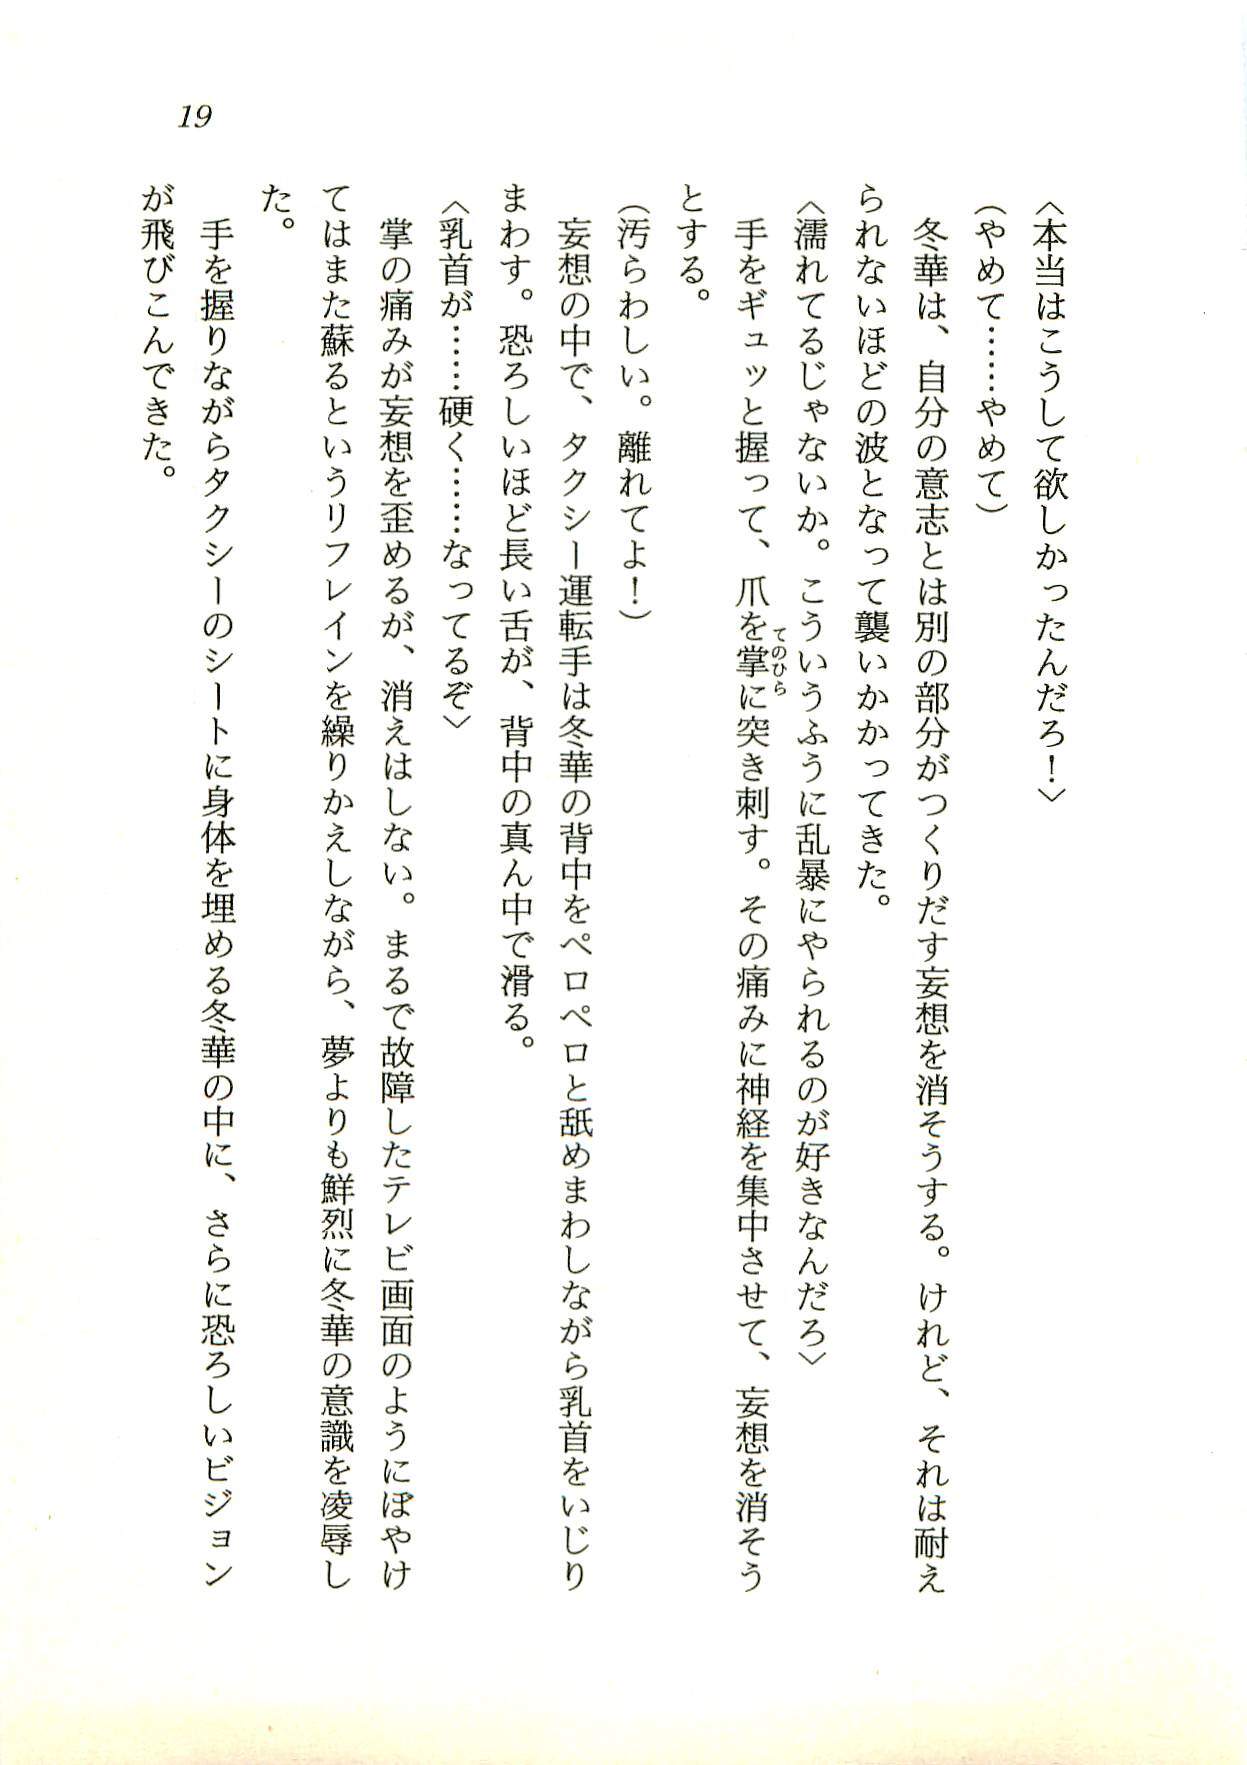 19
〈本当はこうして欲しかったんだろ！〉
（やめて……やめて）
冬華は、自分の意志とは別の部分がつくりだす妄想を消そうする。けれど、それは耐え
られないほどの波となって襲いかかってきた。
〈濡れてるじゃないか。こういうふうに乱暴にやられるのが好きなんだろ〉
手をギュッと握って、爪を掌に突き刺す。その痛みに神経を集中させて、妄想を消そう
てのひら
とする。
（汚らわしい。離れてよ！）
妄想の中で、タクシー運転手は冬華の背中をペロペロと舐めまわしながら乳首をいじり
まわす。恐ろしいほど長い舌が、背中の真ん中で滑る。
〈乳首が……硬く……なってるぞ〉
掌の痛みが妄想を歪めるが、消えはしない。まるで故障したテレビ画面のようにぼやけ
てはまた蘇るというリフレインを繰りかえしながら、夢よりも鮮烈に冬華の意識を凌辱し
た。
手を握りながらタクシーのシートに身体を埋める冬華の中に、さらに恐ろしいビジョン
が飛びこんできた。